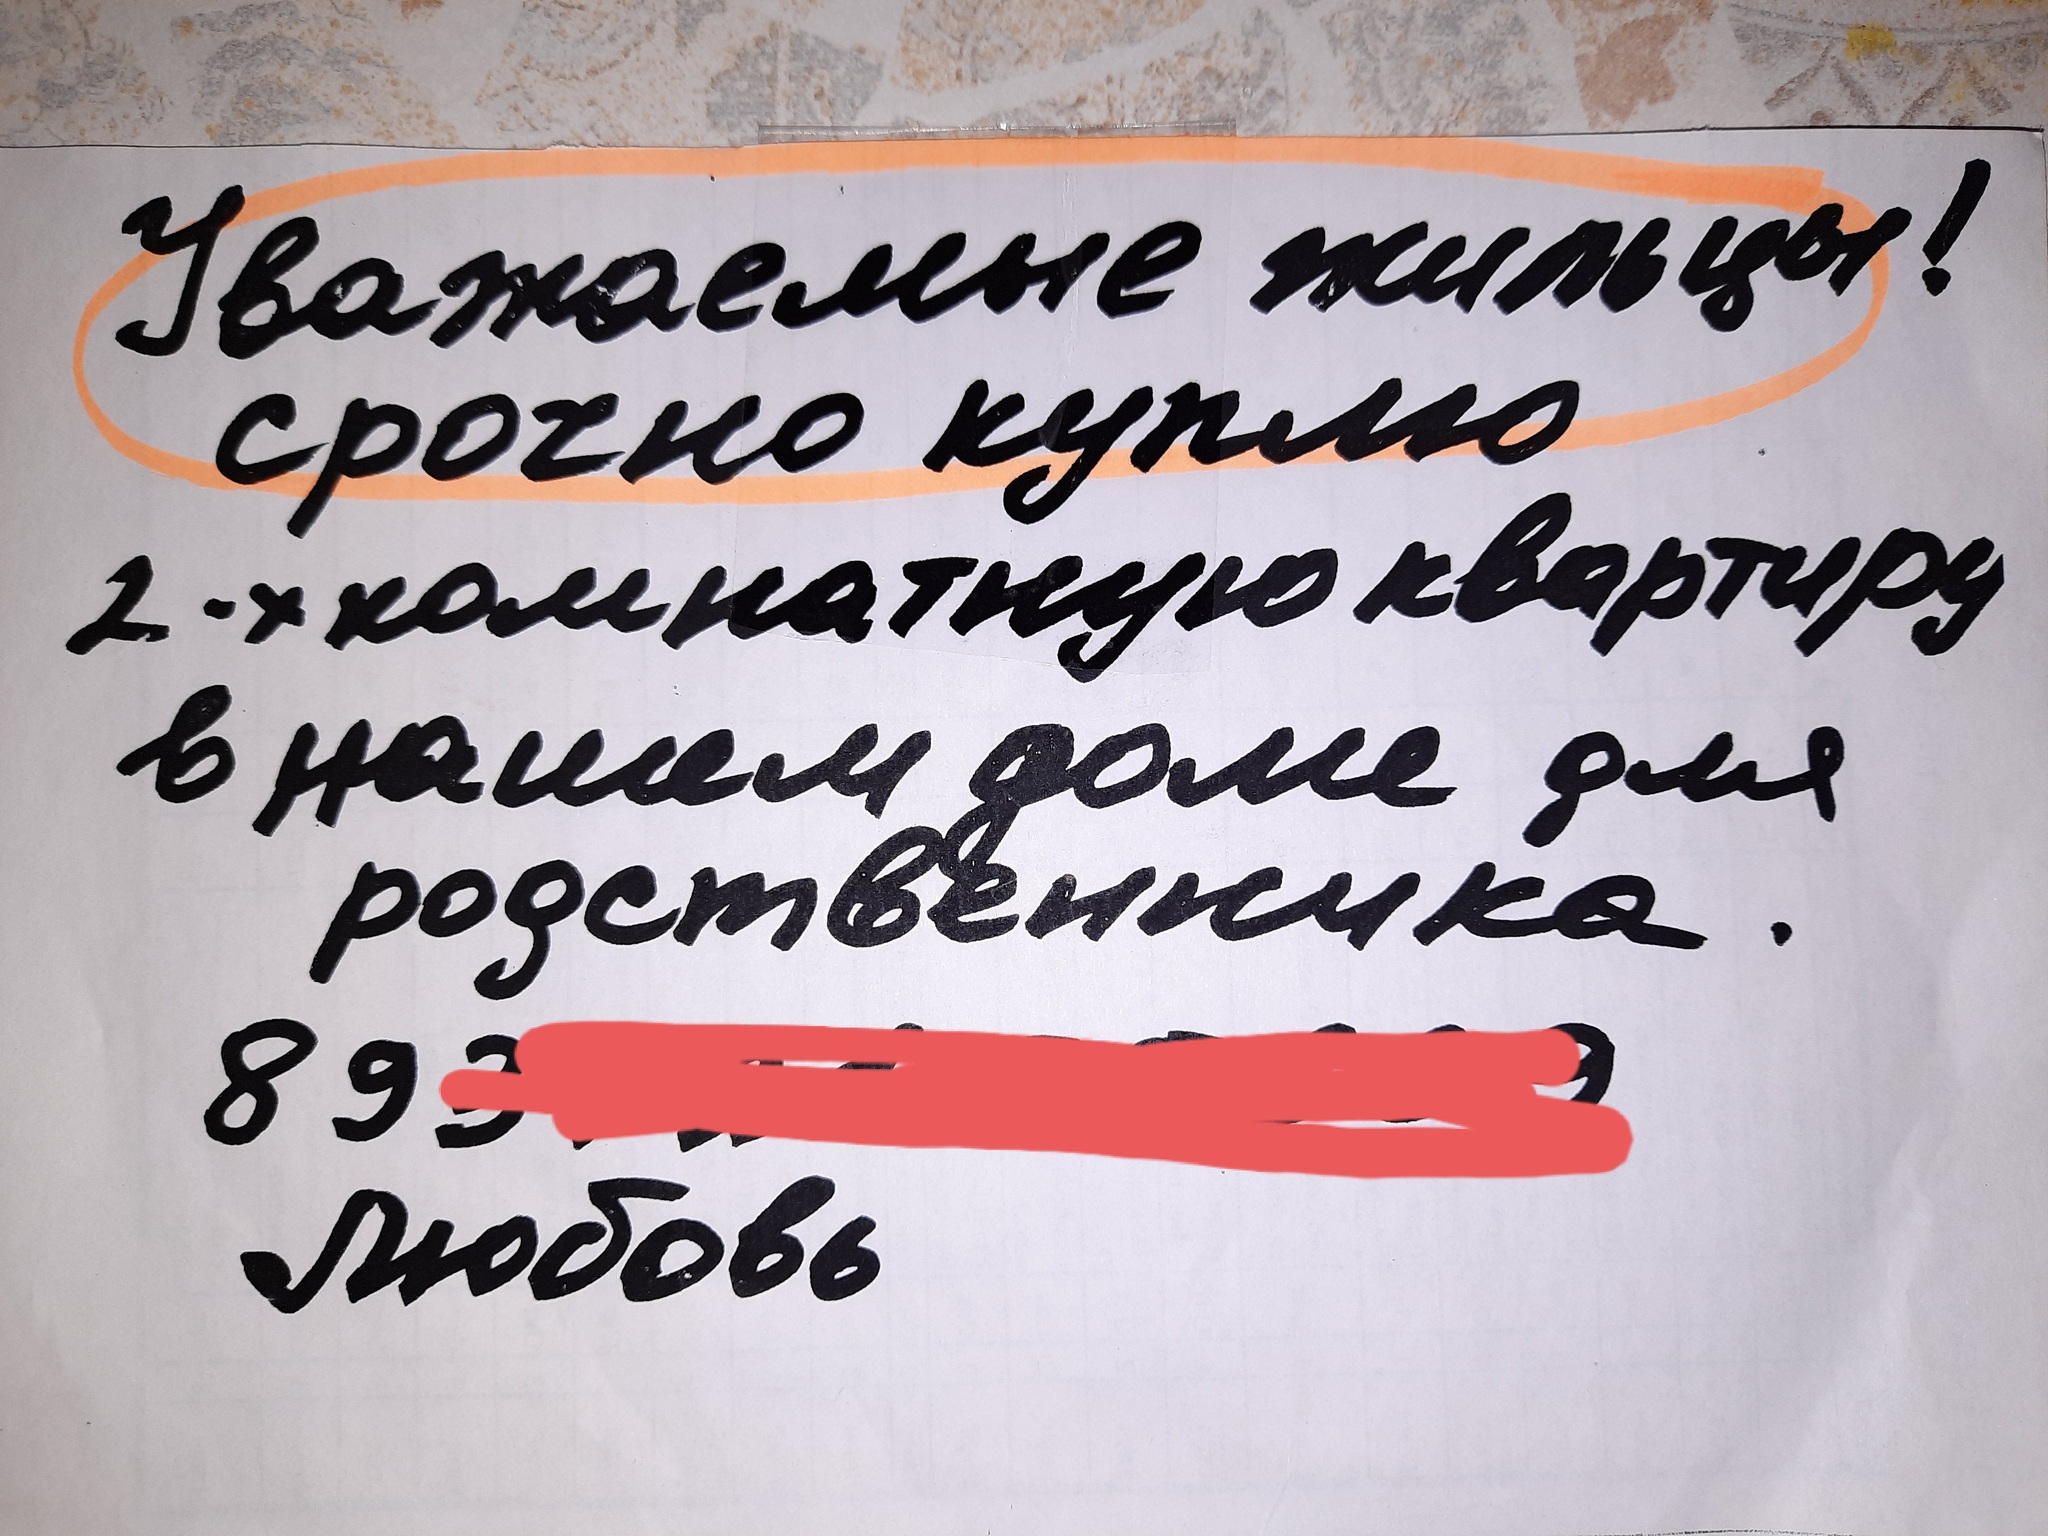 Уважаемые жильцы!
срочно куплю
2-х комнатную квартиру
в нашем доме для
родственника.
893
Любовь